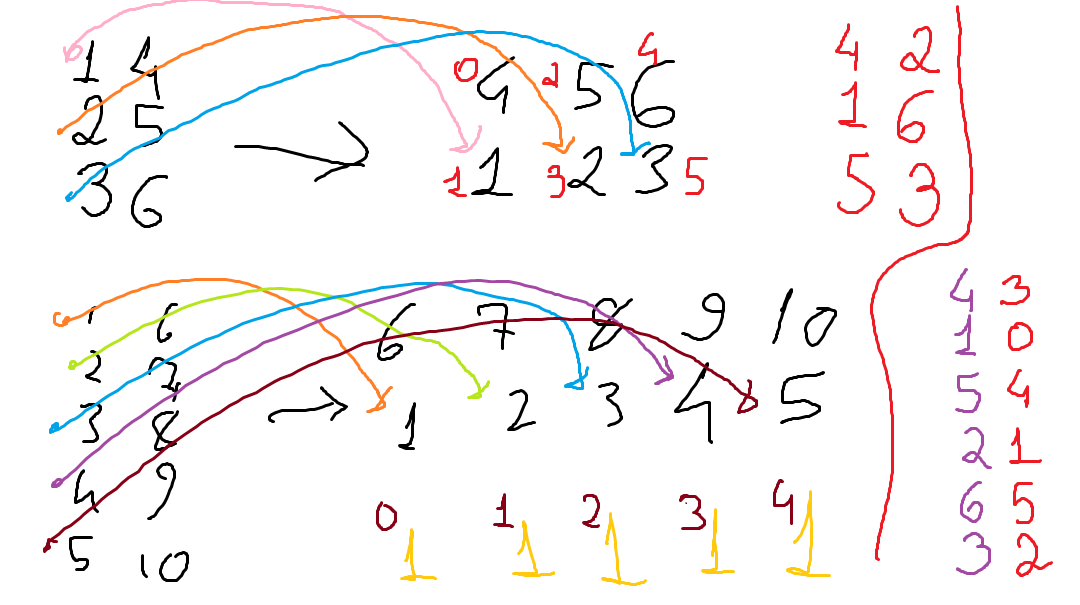 1 4
2 5
3 6
0 4 2 5 4 6
1 1 3 2 3 5
4 2
1 6
5 3
1 6
2 7
3 8
4 9
5 10
6 7 8 9 10
1 2 3 4 5
0 1 2 3 4
1 1 1 1 1
4 3
1 0
5 4
2 1
6 5
3 2